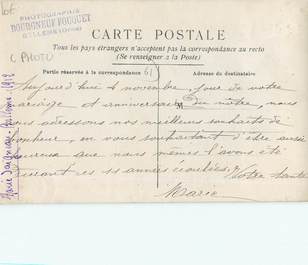 PHOTOGRAPHIE
BOURGNEUF FOUQUET
CARTE POSTALE
Tous les pays étrangers n'acceptent pas la correspondance au recto
(Se renseigner à la Poste)
Partie réservée à la correspondance
Adresse du destinataire
Aujourd'hui 4 novembre, jour de votre
mariage et anniversaire du nôtre, nous
vous adressons nos meilleurs souhaits de
bonheur, en vous souhaitant d'être aussi
heureux que nous mêmes l'avons été
durant ces 11 années écoulées. Votre tante
Marie